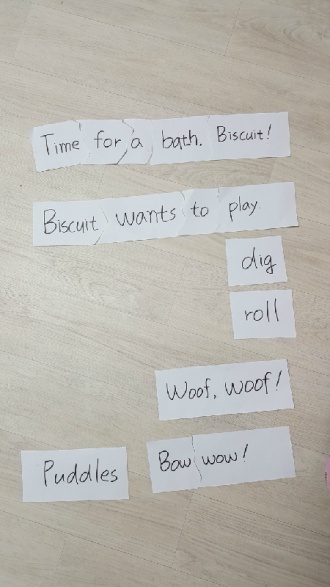 Time for a bath. Biscuit!
Biscuit wants to play.
dig
roll
Woof, woof!
Puddles Bow wow!